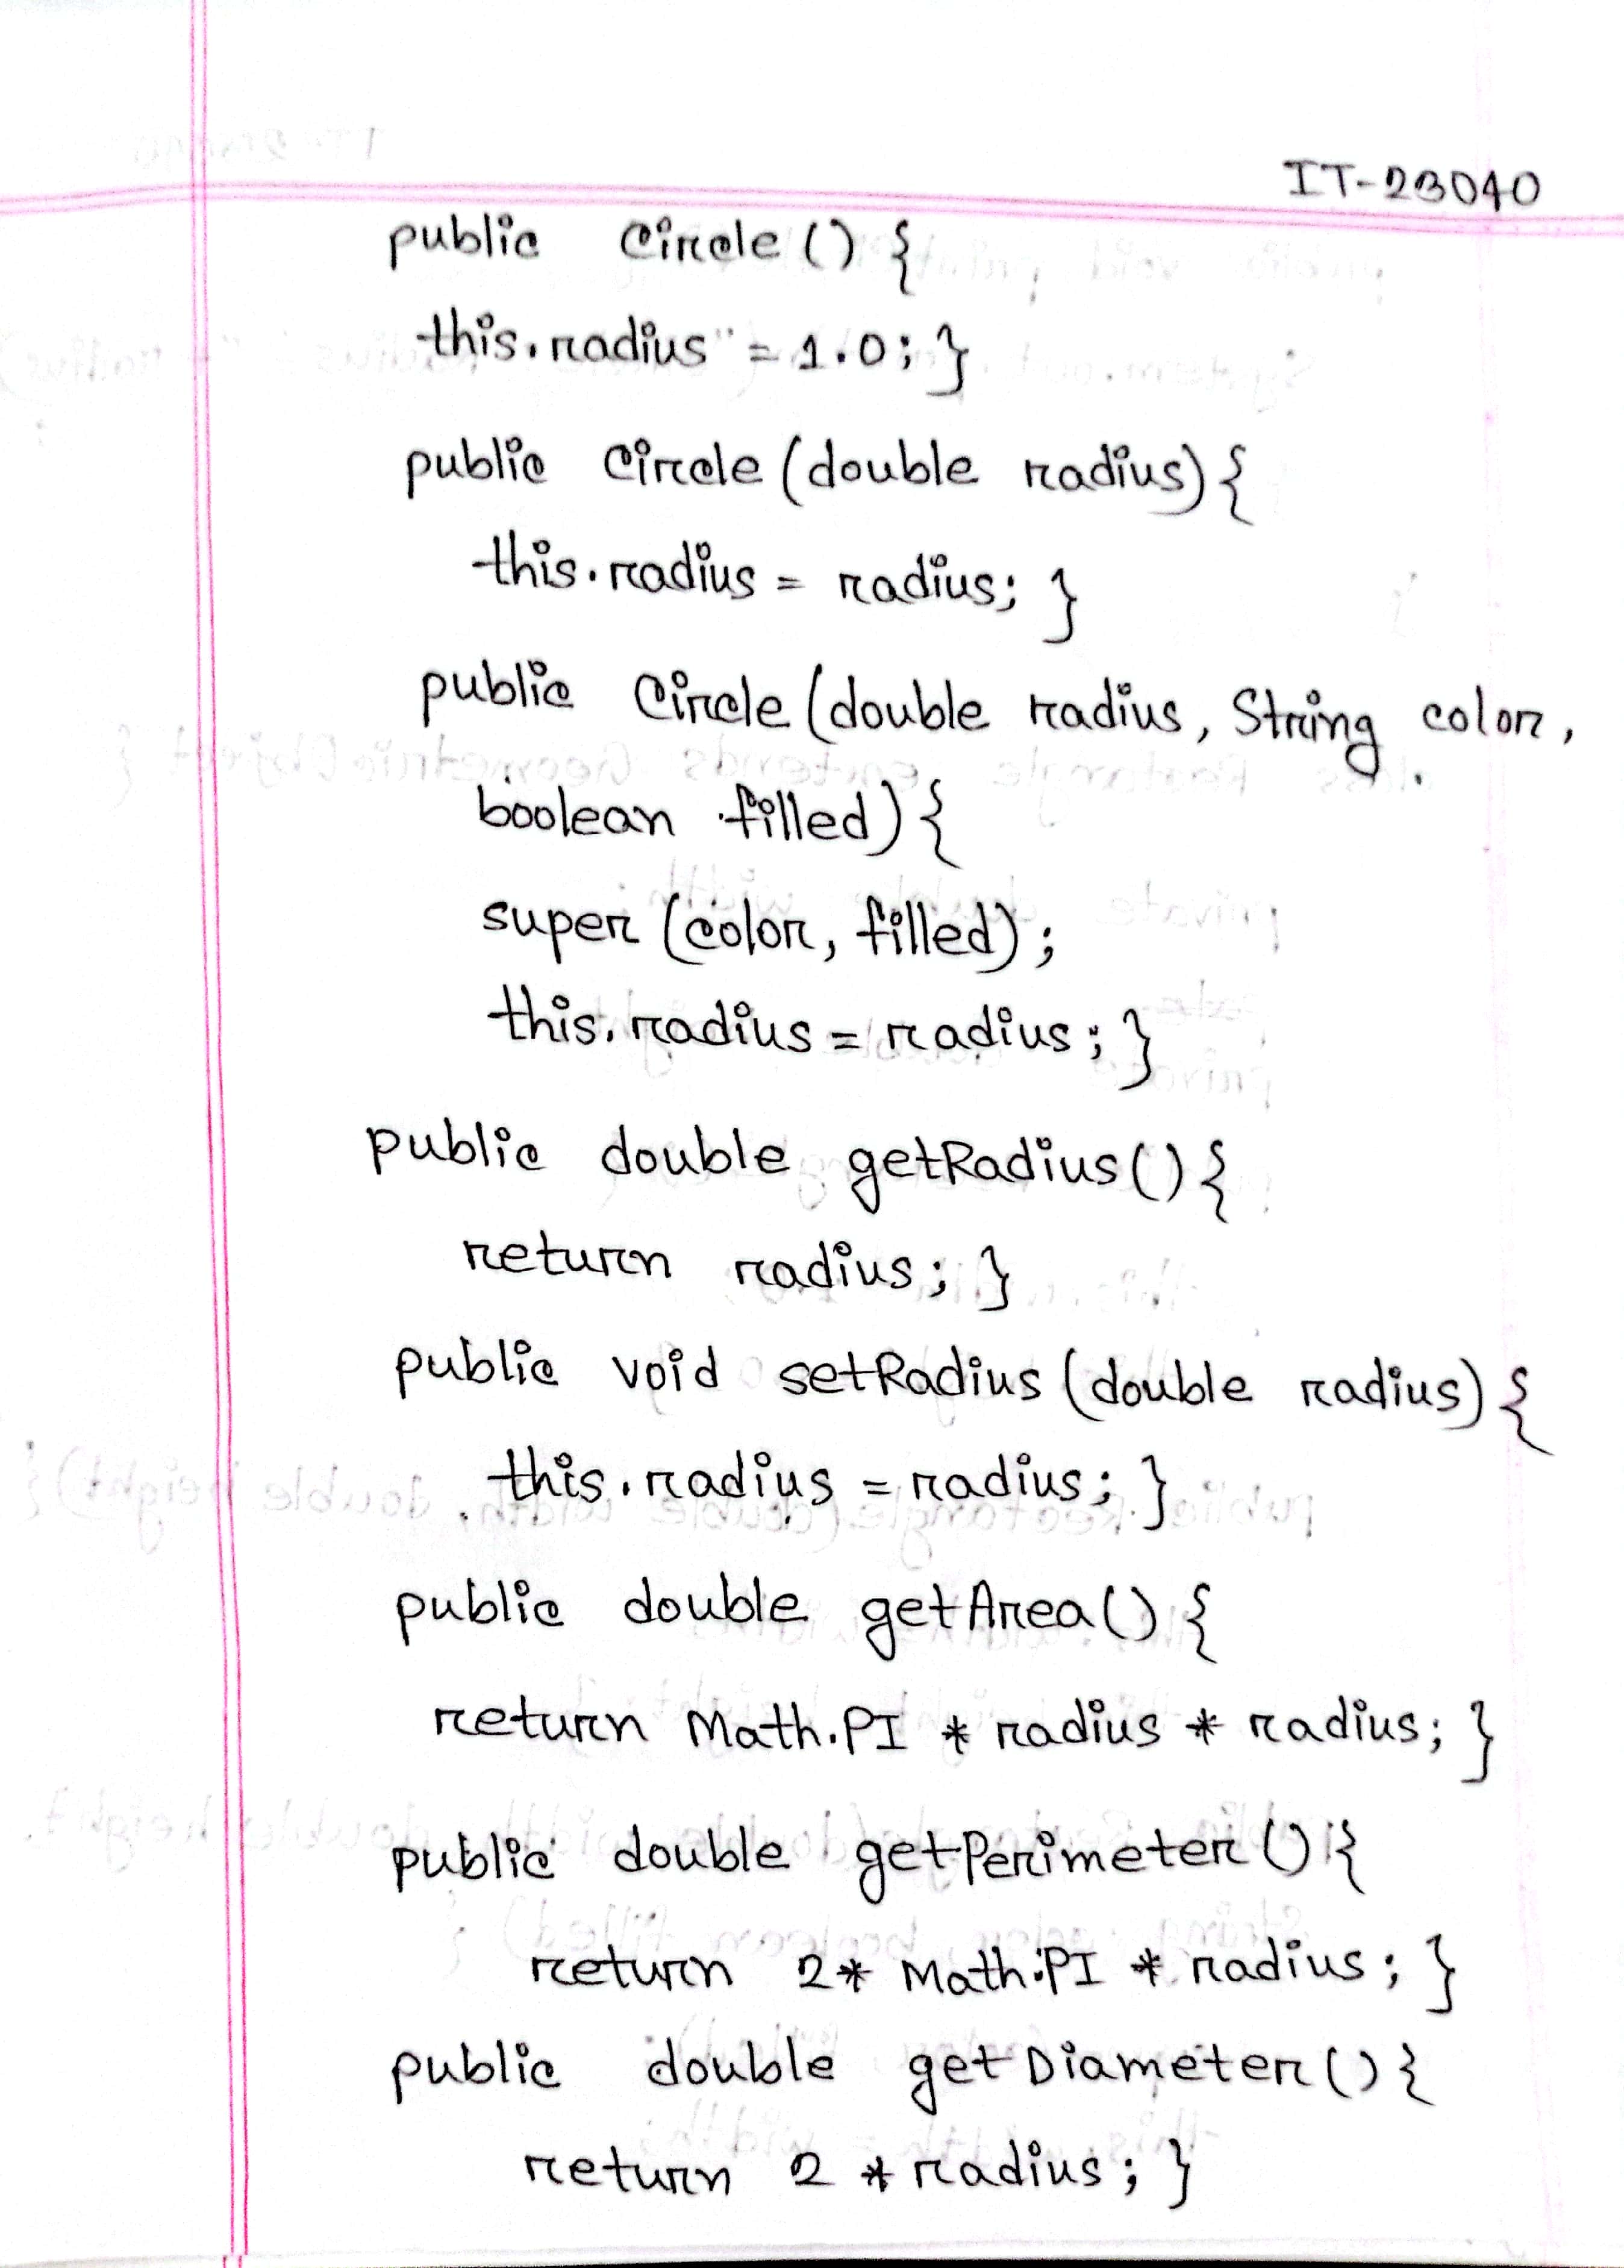 IT-23040
public Circle () {
this.radius = 1.0; }
public Circle (double radius) {
this.radius = radius; }
public Circle (double radius, String color,
boolean filled) {
super (color, filled);
this.radius = radius; }
public double getRadius() {
return radius; }
public void setRadius (double radius) {
this.radius = radius; }
public double getArea() {
return Math.PI * radius * radius; }
public double getPerimeter () {
return 2 * Math.PI * radius; }
public double getDiameter () {
return 2 * radius; }